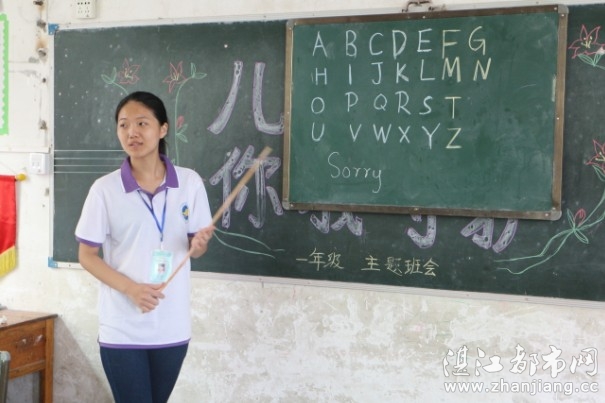 A B C D E F G
H I J K L M N
O P Q R S T
U V W X Y Z
Sorry
儿
你
一年级 主题班会
湛江都市网
www.zhanjiang.cc